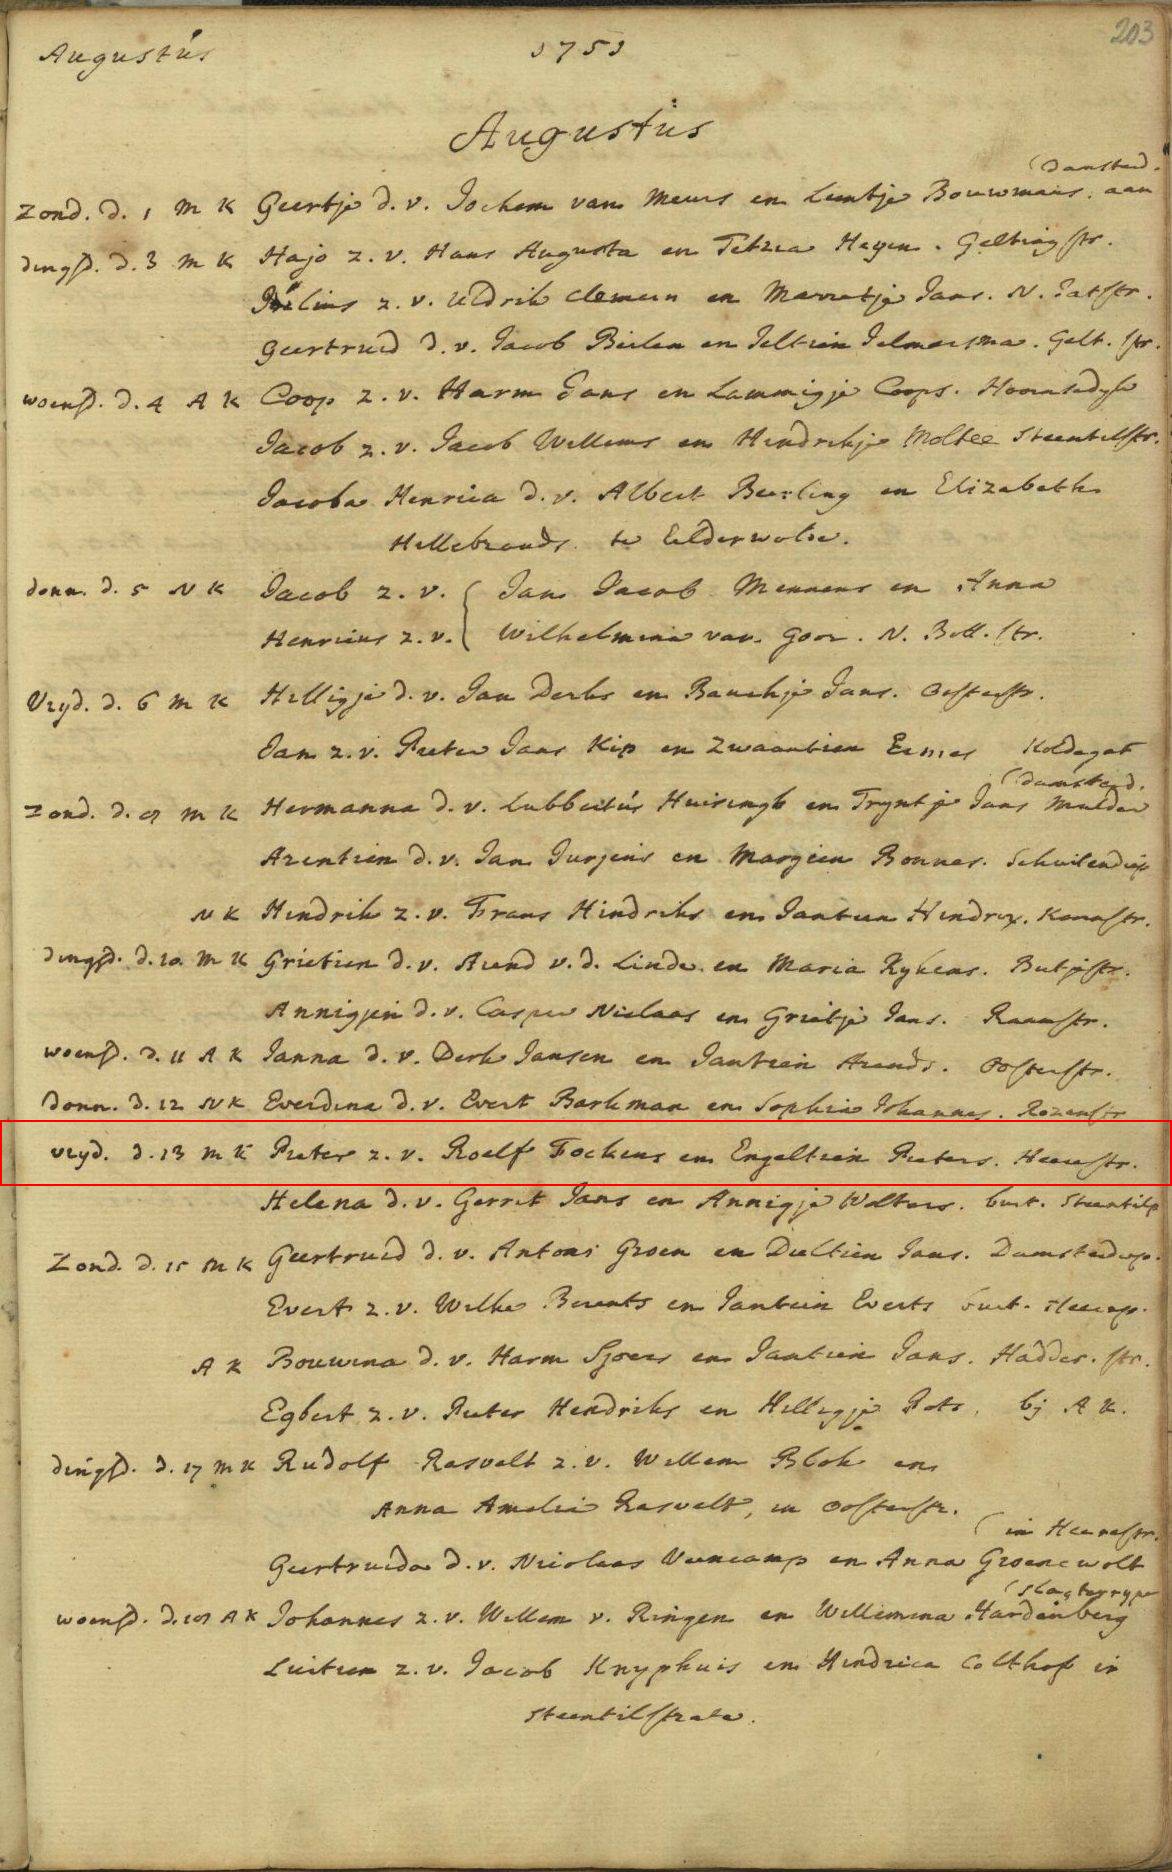 203
Augustús 1751
Augustus
(Damsterd.
Zond. d. 1 M K Geertje d. v. Jochem van Meurs en Leentje Bouwmans. aan
dingsd. d. 3 M K Hajo z. v. Hans Augusta en Tetzea Heyen. Gelkingstr.
Julius z. v. Uldrik Clemeen en Marretje Jans. N. Jatstr.
Geertruid d. v. Jacob Beilen en Jeltien Jelmersma. Gelk. str.
woensd. d. 4 A K Coop z. v. Harm Jans en Lammigje Coops. Hoornsedyk
Jacob z. v. Jacob Willems en Hendrikje Moltee Steentilstr.
Jacoba Henrica d. v. Albert Beerling en Elizabeth
Hillebrands te Eelderwolde.
donn. d. 5 N K Jacob z. v. { Jan Jacob Mennens en Anna
Henricus z. v. { Wilhelmina van Goor. N. Bott. str.
Vryd. d. 6 M K Hilligje d. v. Jan Derks en Baukje Jans. Oosterstr.
Jan z. v. Pieter Jans Kip en Zwaantien Eenes Koldegat
(Damsterd.
Zond. d. 8 M K Hermanna d. v. Lubbertús Huisingh en Tryntje Jans Mulder
Arentien d. v. Jan Jurjens en Margien Bonnes. Schuitendiep
N K Hindrik z. v. Frans Hindriks en Jantien Hindrix. Kornstr.
dingsd. d. 10 M K Grietien d. v. Arend v. d. Linde en Maria Rykens. Butjestr.
Annigjen d. v. Casper Niclaas en Grietje Jans. Raamstr.
woensd. d. 11 A K Janna d. v. Derk Jansen en Jantien Arends. Oosterstr.
Donn. d. 12 N K Everdina d. v. Evert Barkman en Sophia Johannes. Rozenstr
vryd. d. 13 M K Pieter z. v. Roelf Fockens en Engeltien Pieters. Heerestr.
Helena d. v. Gerrit Jans en Annigje Wolters. buit. Steentilp
Zond. d. 15 M K Geertruid d. v. Antoni Groen en Dieltien Jans. Damsterdiep.
Evert z. v. Wilke Berents en Jantien Everts buit. Heerep.
A K Bouwina d. v. Harm Sjoers en Jantien Jans. Hadder. str.
Egbert z. v. Pieter Hendriks en Hilligje Pots. bij A K.
dingsd. d. 17 M K Rudolf Rasvelt z. v. Willem Blok en
Anna Amelia Rasvelt, in Oosterstr.
(in Heerestr.
Geertruida d. v. Nicolaas Veencamp en Anna Groenewolt
(Slagterryp
woensd. d. 18 A K Johannes z. v. Willem v. Ringen en Willemina Hardenberg
Luitien z. v. Jacob Knyphuis en Hindrica Colthof in
Steentilstrate.